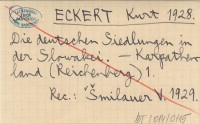 ECKERT Kurt 1928.
Die deutschen Siedlungen in
der Slowakei. — Karpathen
land (Reichenberg) 1.
Rec.: Šmilauer V. 1929.